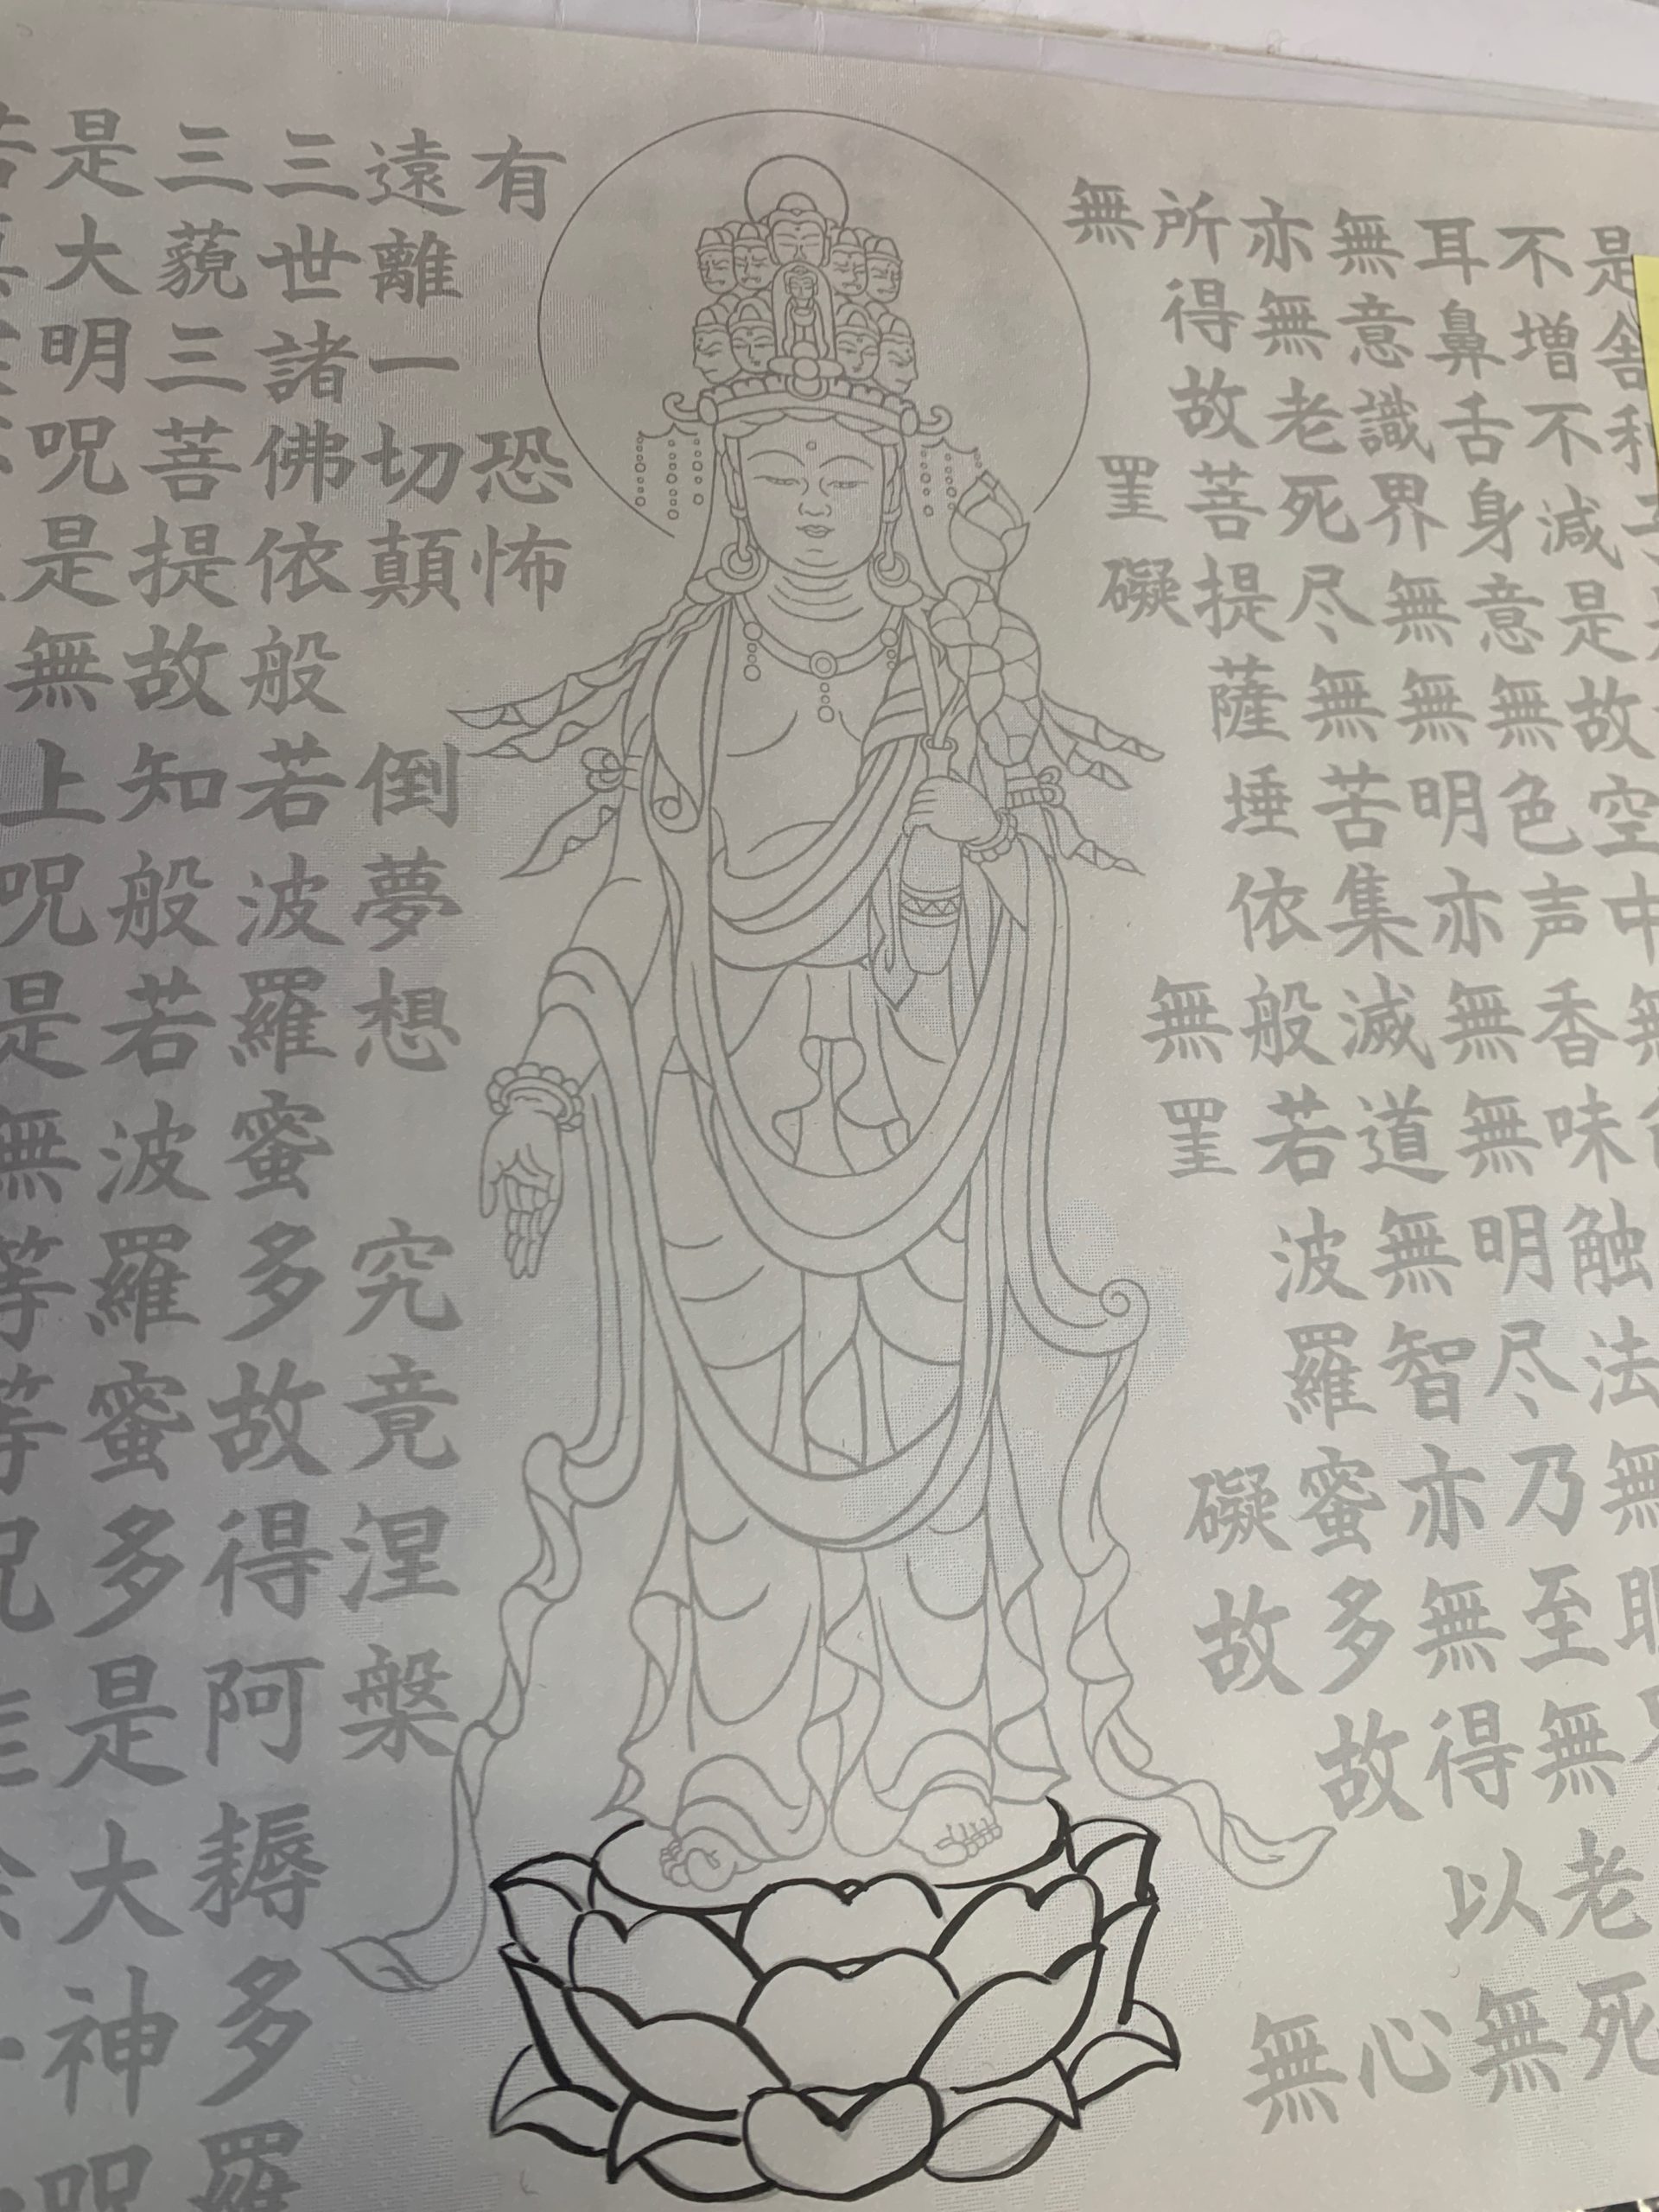 是舎利
不増不減是故空中無
耳鼻舌身意無色声香味触法無
無意識界無無明亦無無明尽乃至無老死
亦無老死尽無苦集滅道無智亦無得以無
所得故菩提薩埵依般若波羅蜜多故心
無罣礙無罣礙故無
有恐怖
遠離一切顛倒夢想究竟涅槃
三世諸佛依般若波羅蜜多故得阿耨多羅
三藐三菩提故知般若波羅蜜多是大神呪
是大明呪是無上呪是無等等呪